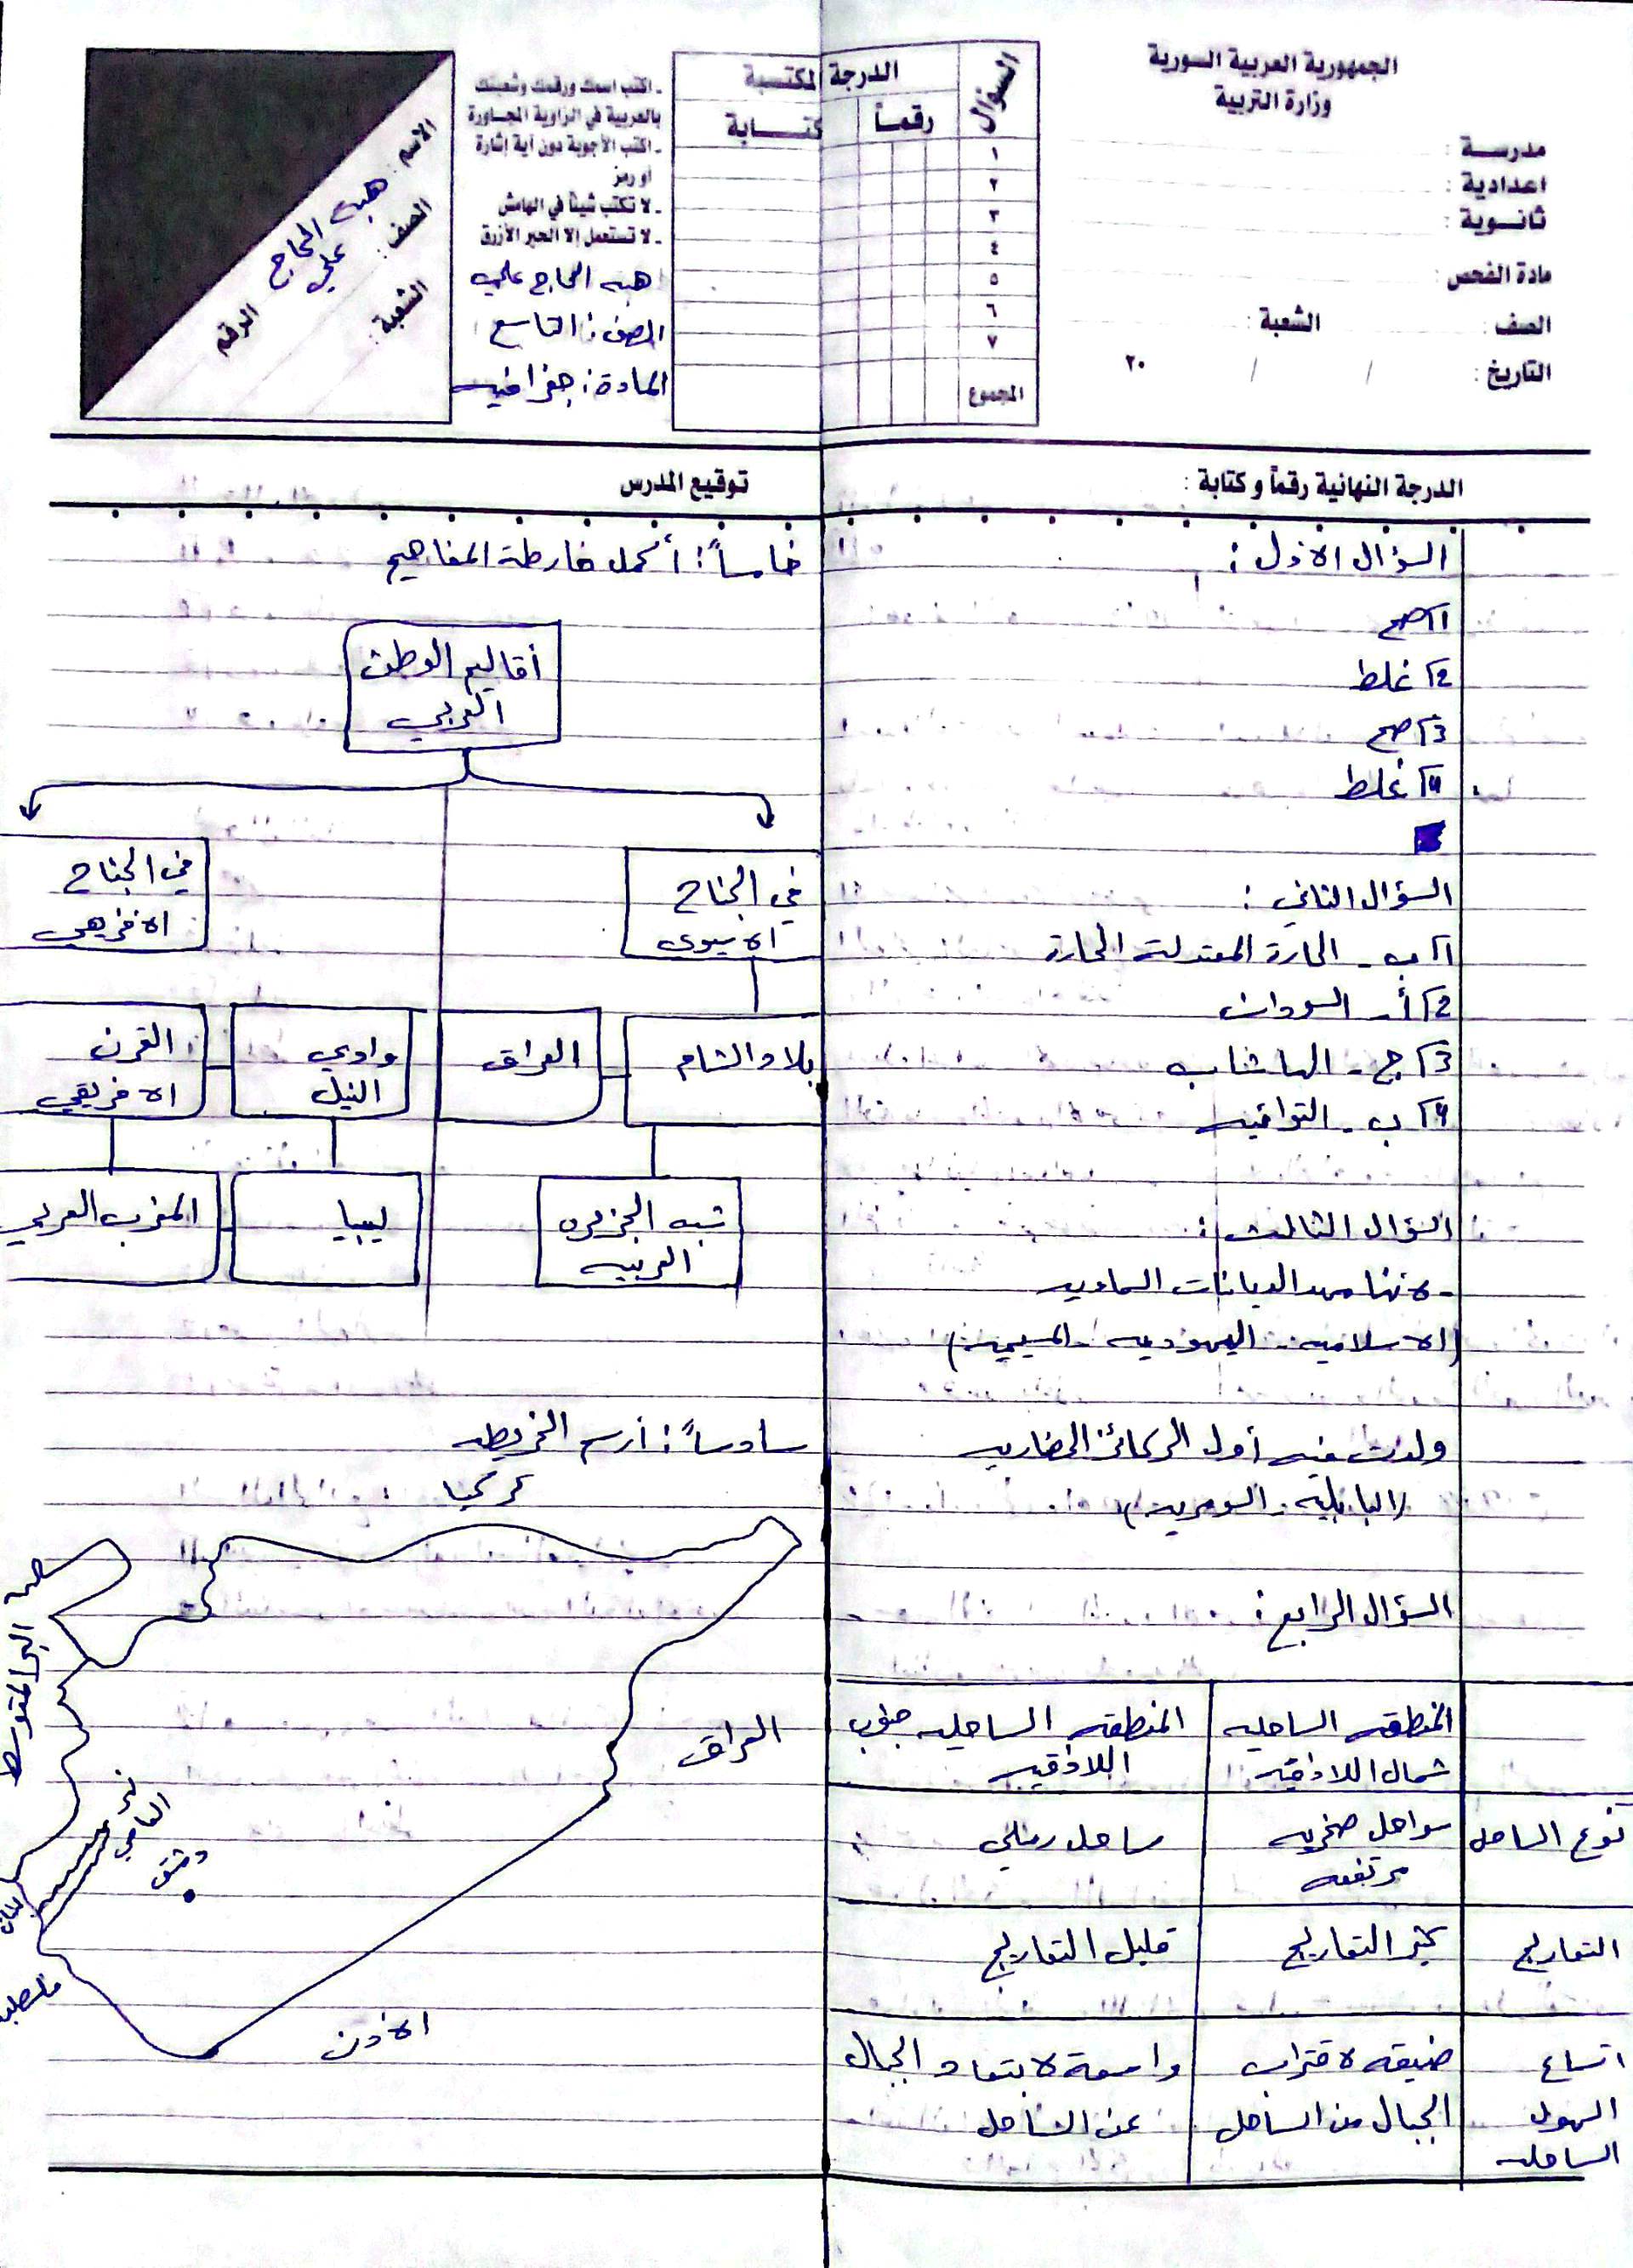 الجمهورية العربية السورية
وزارة التربية
مدرسة :
اعدادية :
ثانوية :
مادة الفحص :
الصف : الشعبة :
التاريخ : / / ٢٠
السؤال
الدرجة المكتسبة
رقماً
كتابة
١
٢
٣
٤
٥
٦
٧
المجموع
ـ اكتب اسمك ورقمك وشعبتك
بالعربية في الزاوية المجاورة
ـ اكتب الأجوبة دون أية إشارة
أو رمز
ـ لا تكتب شيئاً في الهامش
ـ لا تستعمل إلا الحبر الأزرق
هبه الحاج علي
الصف : التاسع
المادة : جغرافيه
الاسم : هبه الحاج علي
الصف :
الشعبة :
الرقم
الدرجة النهائية رقماً و كتابة :
توقيع المدرس
السؤال الاول :
1) صح
2) غلط
3) صح
4) غلط
السؤال الثاني :
1) ب - الحارة المعتدلة الحارة
2) أ - السودان
3) ج - الهاشاب
4) ب - التوافيه
السؤال الثالث :
- لانها مهد الديانات السماويه
(الاسلاميه - اليهوديه - المسيحيه)
ولدت فيه أول الركائز الحضاريه
(البابليه - السومريه)
السؤال الرابع :
المنطقه الساحليه شمال اللاذقيه
المنطقه الساحليه جنوب اللاذقيه
نوع الساحل
سواحل صخريه مرتفعه
ساحل رملي
التعاريج
كثير التعاريج
قليل التعاريج
اتساع السهول الساحليه
ضيقه لاقتراب الجبال من الساحل
واسعة لابتعاد الجبال عن الساحل
خامساً : أكمل خارطة المفاهيم
أقاليم الوطن العربي
في الجناح الاسيوي
في الجناح الافريقي
بلاد الشام
العراق
وادي النيل
القرن الافريقي
شبه الجزيره العربيه
ليبيا
المغرب العربي
سادساً : أرسم الخريطه
تركيا
البحر المتوسط
العراق
نهر العاصي
دمشق
لبنان
فلسطين
الاردن